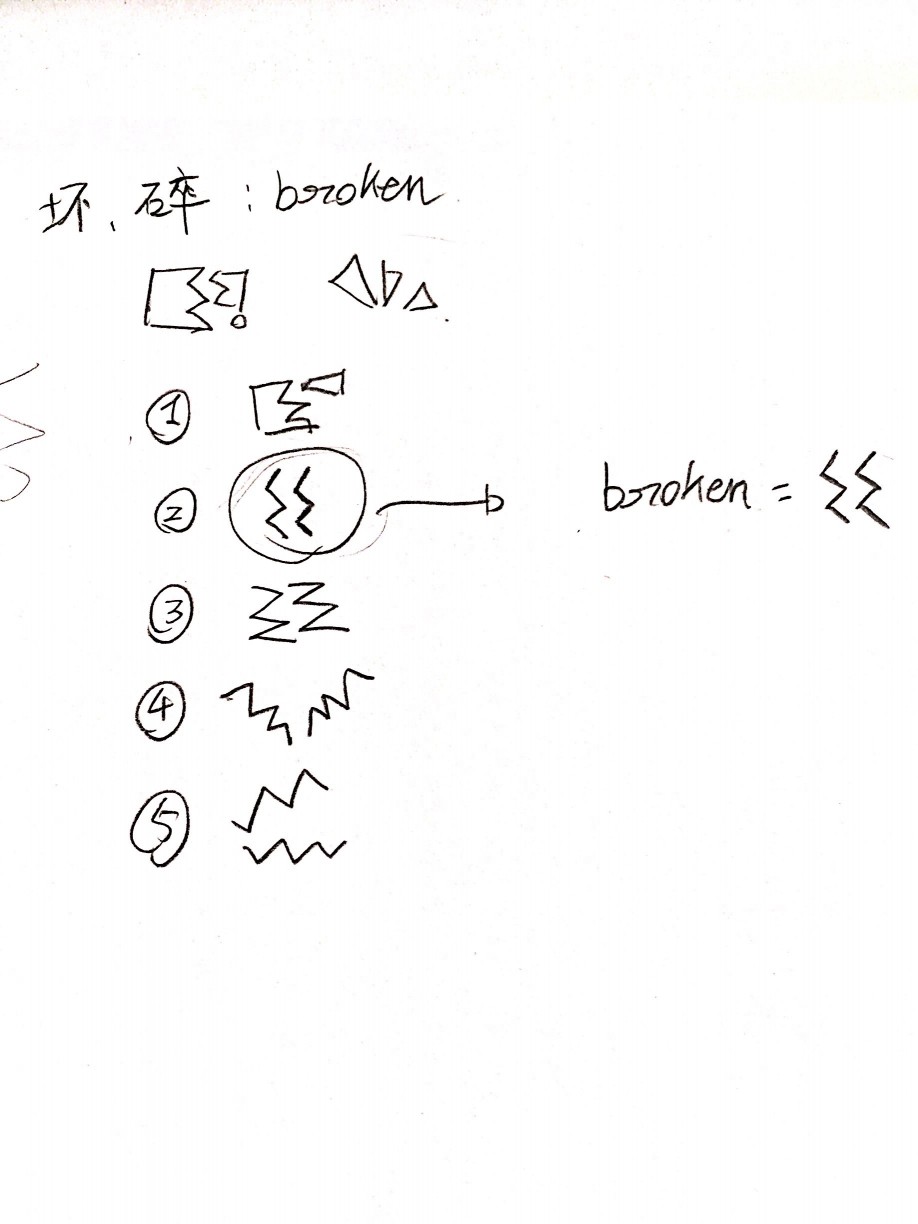 坏、碎：broken
①
②
broken =
③
④
⑤